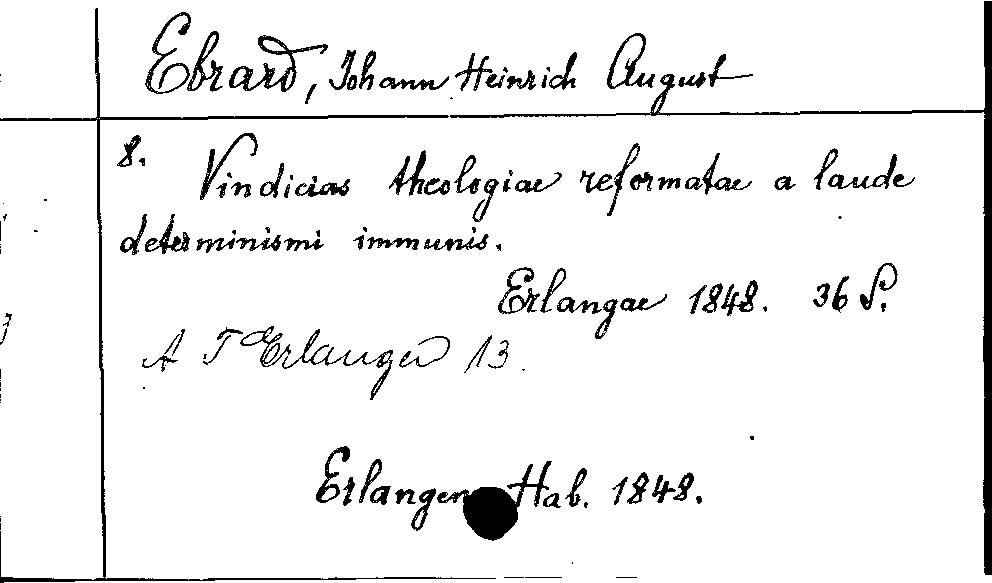 Ebrard, Johann Heinrich August
8. Vindicias theologiae reformatae a laude
determinismi immunis.
Erlangae 1848. 36 S.
A T Erlangen 13.
Erlangen Hab. 1848.